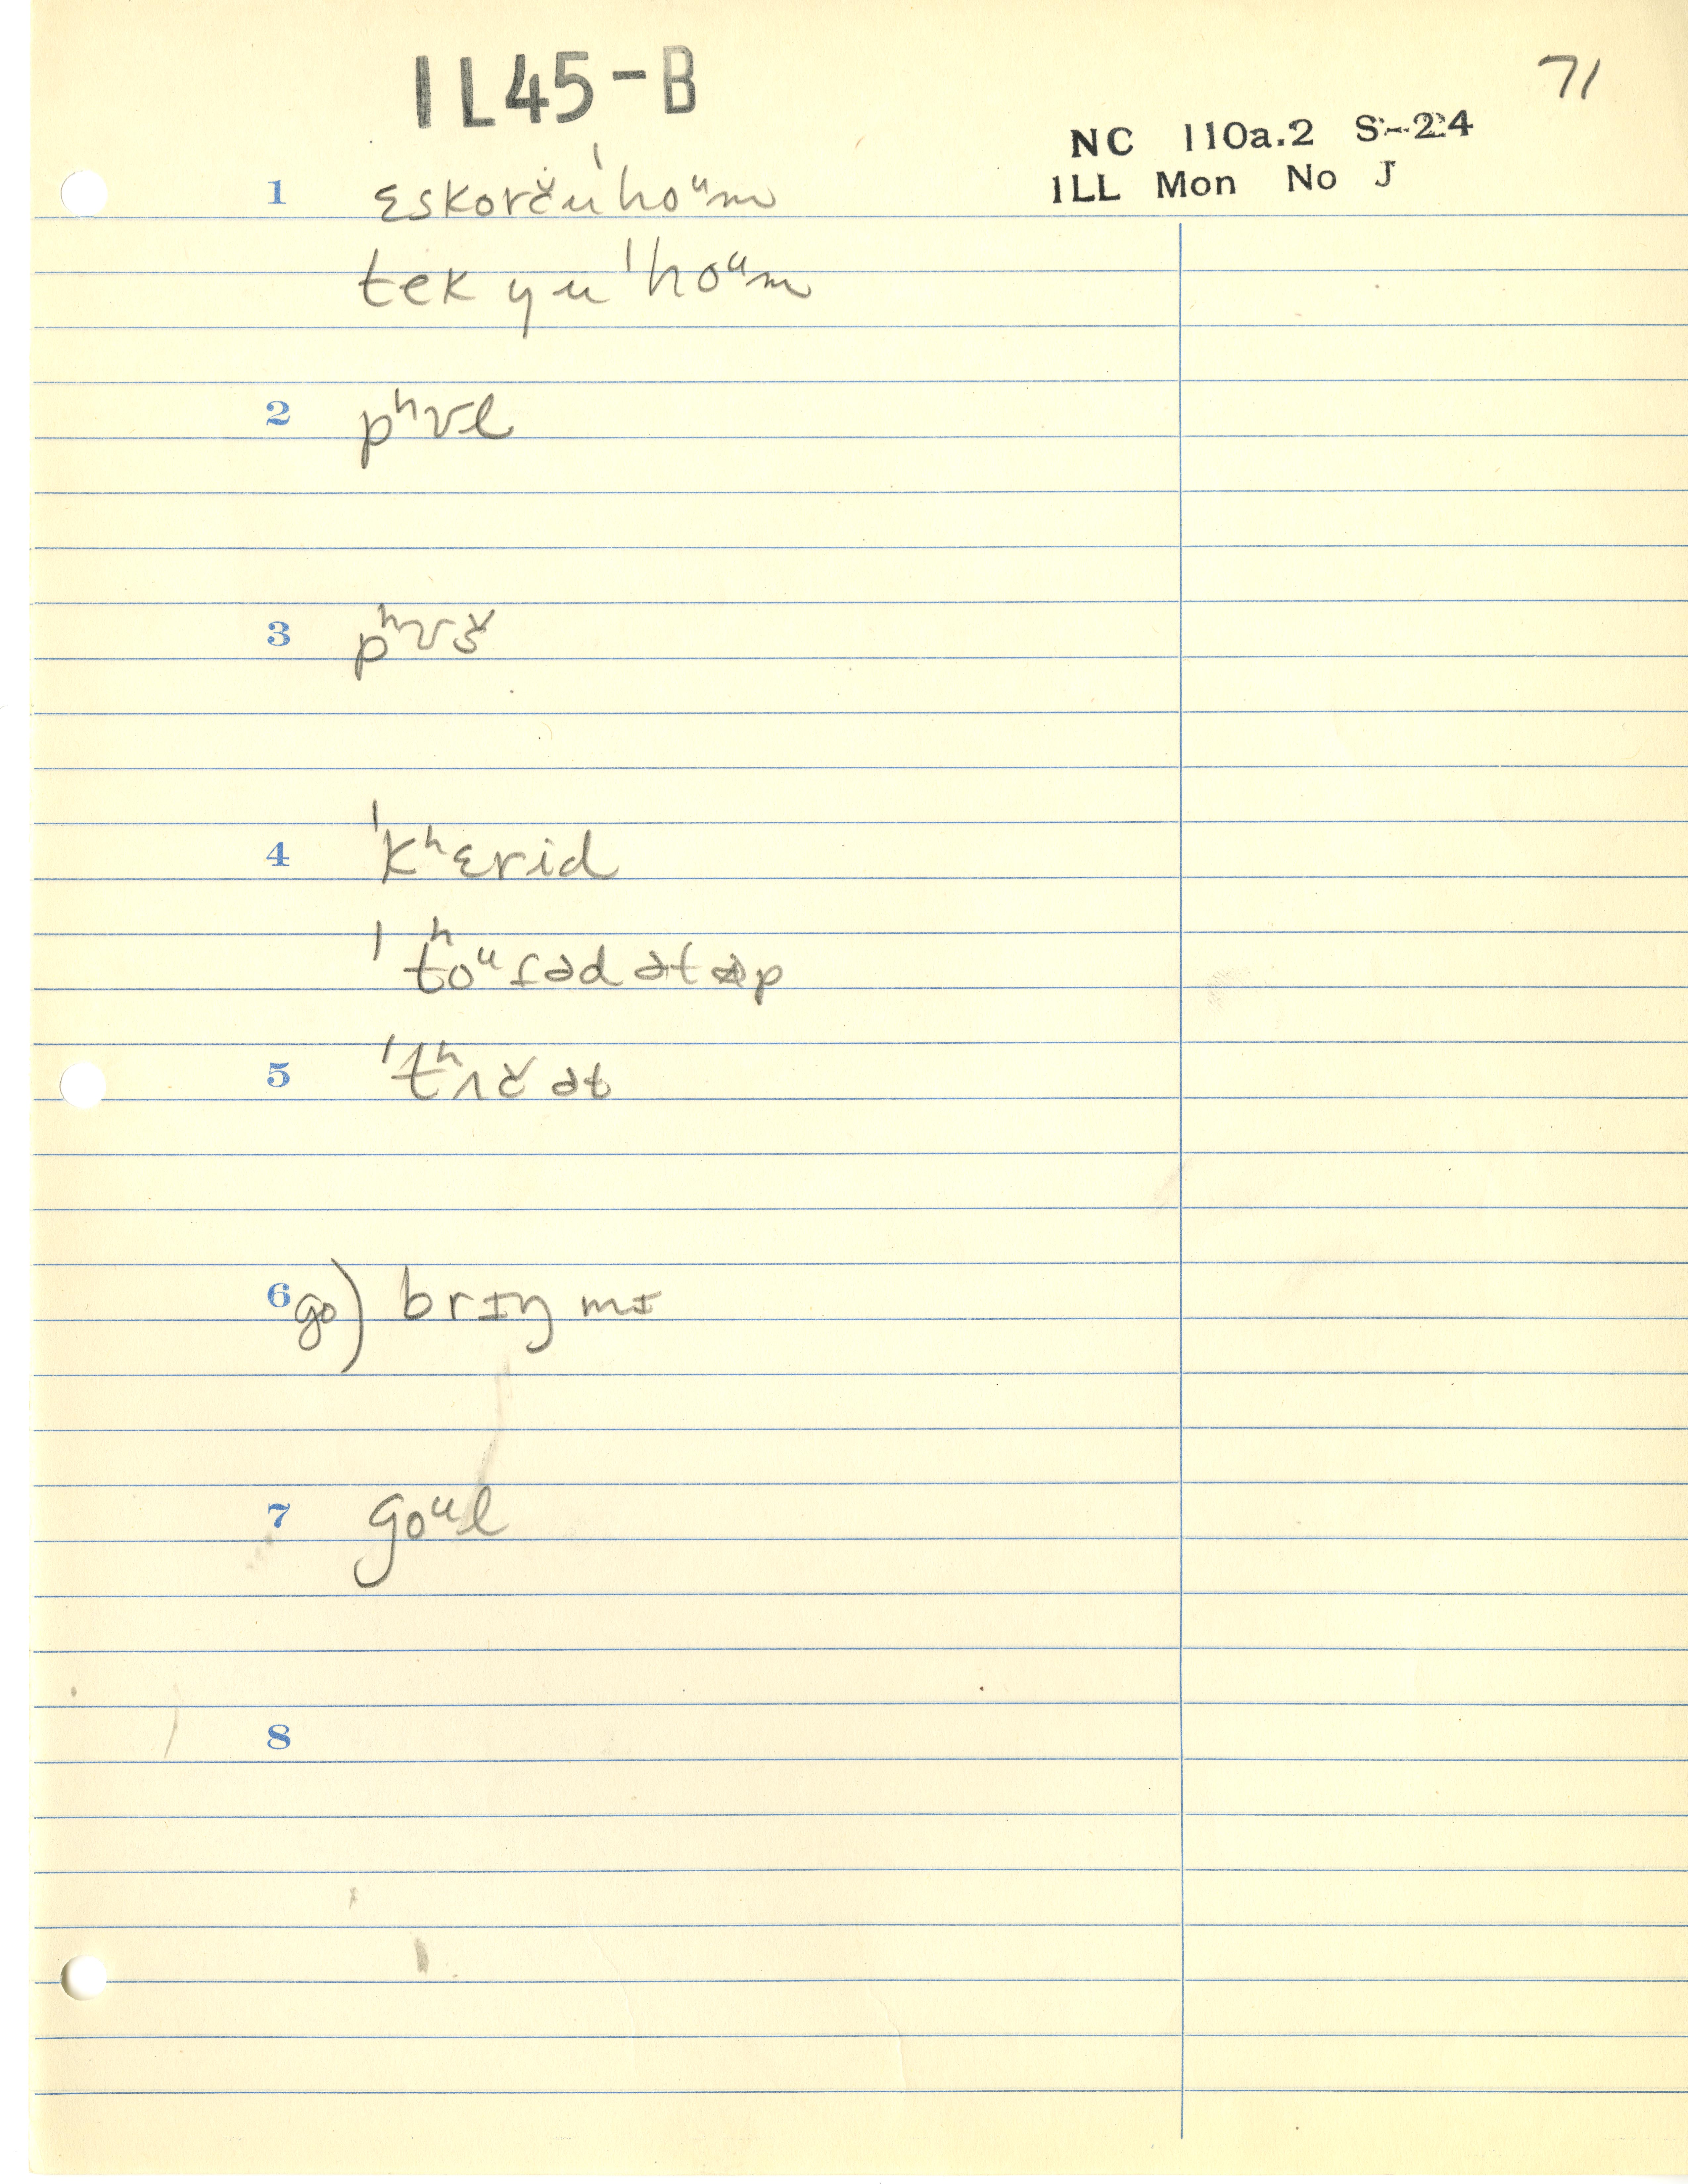 IL45-B
71
NC 110a.2 S-24
ILL Mon No J
1 ɛskorčuˈhoᵘm
tek yuˈhoᵘm
2 pʰʊl
3 pʰʊš
4 ˈkʰɛrid
ˈtʰoᵘɾəd ət əp
5 ˈtʰʌč ət
6 go) brɪŋ mɪ
7 goᵘl
8